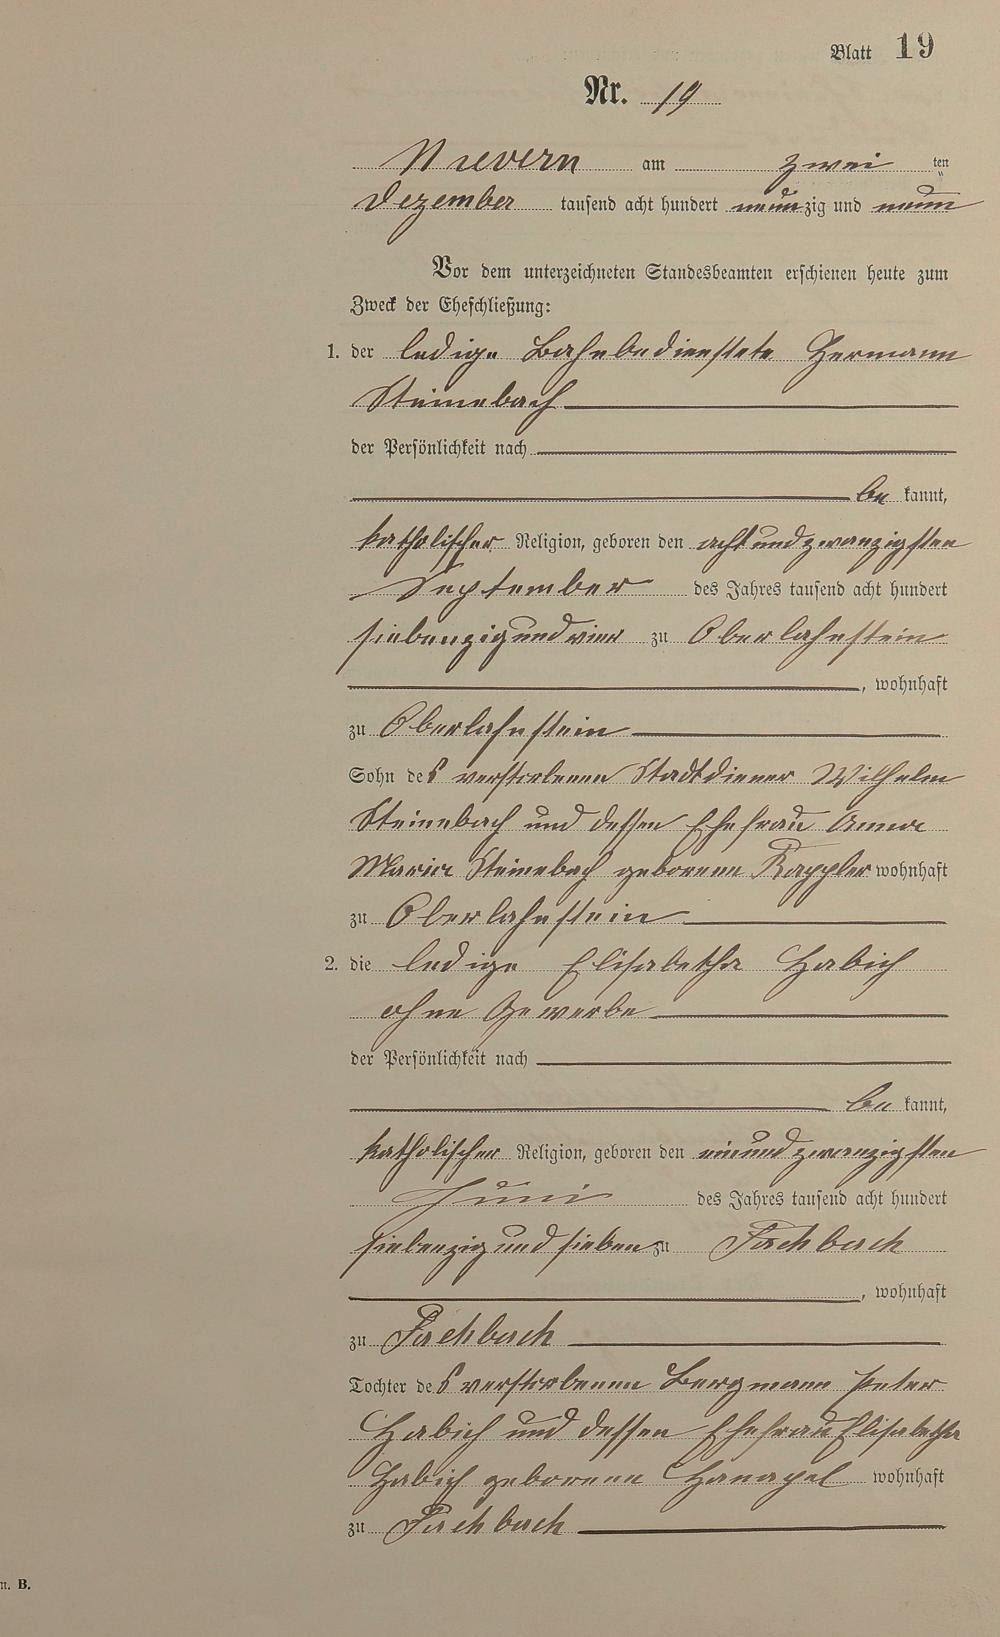 Blatt 19
Nr. 19
Nievern am zwei ten
Dezember tausend acht hundert neunzig und neun
Vor dem unterzeichneten Standesbeamten erschienen heute zum
Zweck der Eheschließung:
1. der ledige Bahnbedienstete Hermann
Steinebach
der Persönlichkeit nach
be kannt,
katholischer Religion, geboren den achtundzwanzigsten
September des Jahres tausend acht hundert
siebenzigundvier zu Oberlahnstein
, wohnhaft
zu Oberlahnstein
Sohn des verstorbenen Stadtdiener Wilhelm
Steinebach und dessen Ehefrau Anna
Maria Steinebach geborene Kappler wohnhaft
zu Oberlahnstein
2. die ledige Elisabetha Habich
ohne Gewerbe
der Persönlichkeit nach
be kannt,
katholischer Religion, geboren den einundzwanzigsten
Juni des Jahres tausend acht hundert
siebenzig und sieben zu Fachbach
, wohnhaft
zu Fachbach
Tochter des verstorbenen Bergmann Peter
Habich und dessen Ehefrau Elisabetha
Habich geborene wohnhaft
zu Fachbach
n. B.